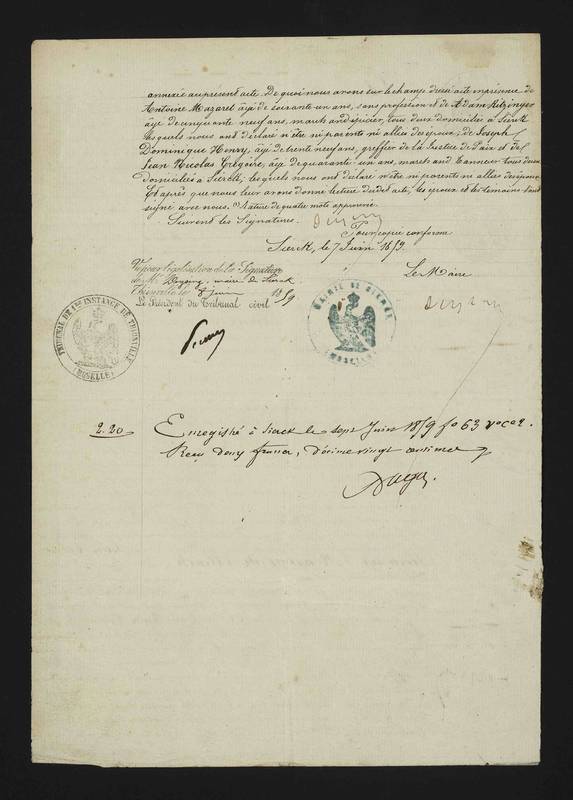 annexée au présent acte. De quoi nous avons sur le champ dressé acte en présence de
Antoine Mazaret âgé de soixante un ans, sans profession et de Adam Ritzinger
âgé de cinquante neuf ans, marchand épicier, tous deux domiciliés à Sierck
lesquels nous ont déclaré n'être ni parents ni alliés des époux; de Joseph
Dominique Henry, âgé de trente neuf ans, greffier de la Justice de Paix et de
Jean Nicolas Grégoire, âgé de quarante un ans, marchand tanneur tous deux
domiciliés à Sierck, lesquels nous ont déclaré n'être ni parents ni alliés des époux
Et après que nous leur avons donné lecture dudit acte, les époux et les témoins l'ont
signé avec nous. Rature de quatre mots approuvée.
Suivent les Signatures.
Pour copie conforme
Sierck, le 7 Juin 1859.
Le Maire
Vu pour légalisation de la Signature
de Mr maire de Sierck
Thionville le 8 juin 1859
Le Président du Tribunal civil
TRIBUNAL DE 1ERE INSTANCE DE THIONVILLE
(MOSELLE)
MAIRIE DE SIERCK
(MOSELLE)
2.20
Enregistré à Sierck le sept Juin 1859 fo 63 vo c 2.
Reçu deux francs, décime vingt centimes